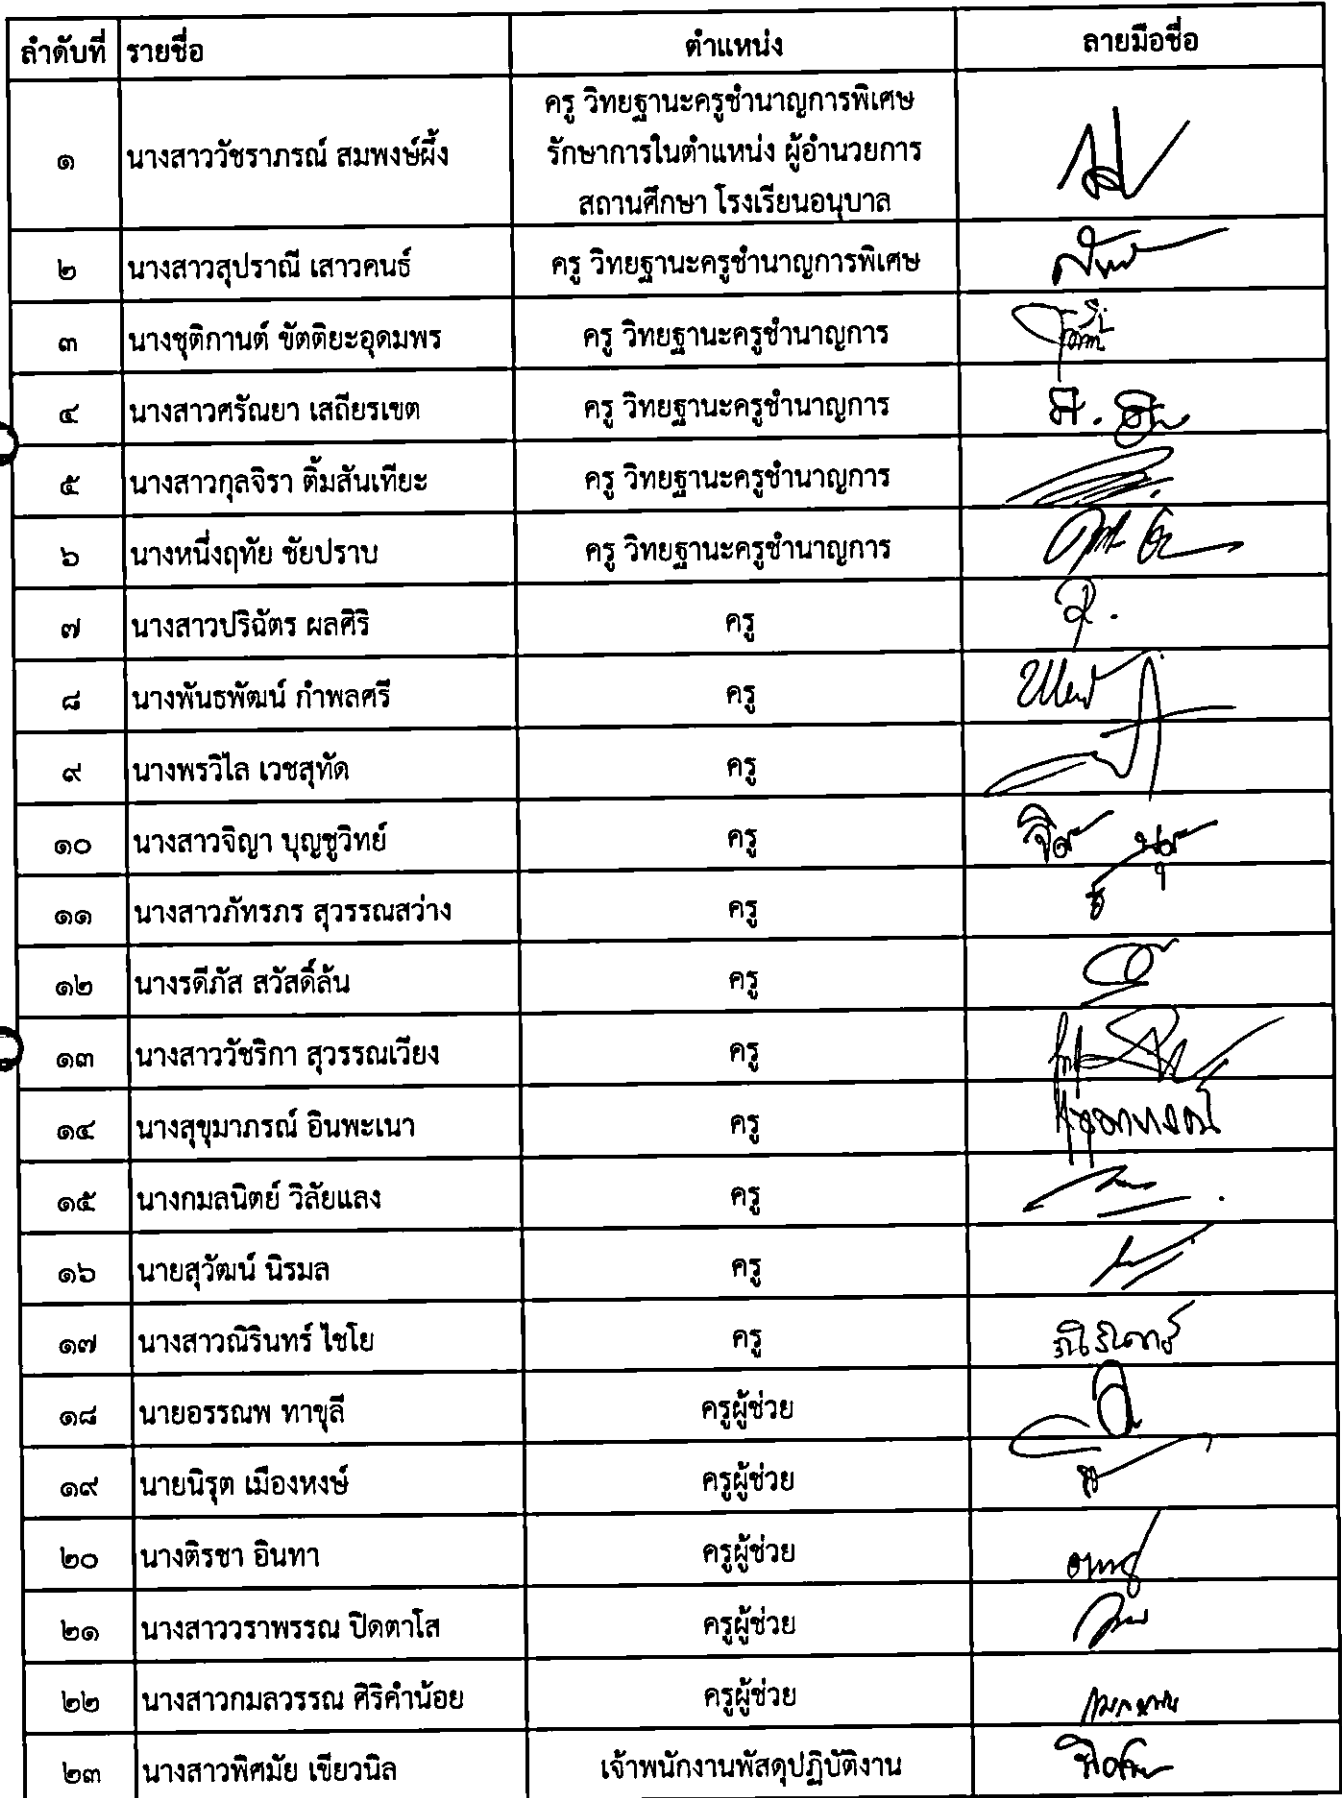 ลำดับที่ รายชื่อ ตำแหน่ง ลายมือชื่อ
๑ นางสาววัชราภรณ์ สมพงษ์ผึ้ง ครู วิทยฐานะครูชำนาญการพิเศษ
รักษาการในตำแหน่ง ผู้อำนวยการ
สถานศึกษา โรงเรียนอนุบาล
๒ นางสาวสุปราณี เสาวคนธ์ ครู วิทยฐานะครูชำนาญการพิเศษ
๓ นางชุติกานต์ ขัตติยะอุดมพร ครู วิทยฐานะครูชำนาญการ
๔ นางสาวศรัณยา เสถียรเขต ครู วิทยฐานะครูชำนาญการ
๕ นางสาวกุลจิรา ติ้มสันเทียะ ครู วิทยฐานะครูชำนาญการ
๖ นางหนึ่งฤทัย ชัยปราบ ครู วิทยฐานะครูชำนาญการ
๗ นางสาวปริฉัตร ผลศิริ ครู
๘ นางพันธพัฒน์ กำพลศรี ครู
๙ นางพรวิไล เวชสุทัด ครู
๑๐ นางสาวจิญา บุญชูวิทย์ ครู
๑๑ นางสาวภัทรภร สุวรรณสว่าง ครู
๑๒ นางรดีภัส สวัสดิ์ล้น ครู
๑๓ นางสาววัชริกา สุวรรณเวียง ครู
๑๔ นางสุขุมาภรณ์ อินพะเนา ครู
๑๕ นางกมลนิตย์ วิลัยแลง ครู
๑๖ นายสุวัฒน์ นิรมล ครู
๑๗ นางสาวณิรินทร์ ไชโย ครู
๑๘ นายอรรณพ ทาขุลี ครูผู้ช่วย
๑๙ นายนิรุต เมืองหงษ์ ครูผู้ช่วย
๒๐ นางติรชา อินทา ครูผู้ช่วย
๒๑ นางสาววราพรรณ ปิดตาโส ครูผู้ช่วย
๒๒ นางสาวกมลวรรณ ศิริคำน้อย ครูผู้ช่วย
๒๓ นางสาวพิศมัย เขียวนิล เจ้าพนักงานพัสดุปฏิบัติงาน